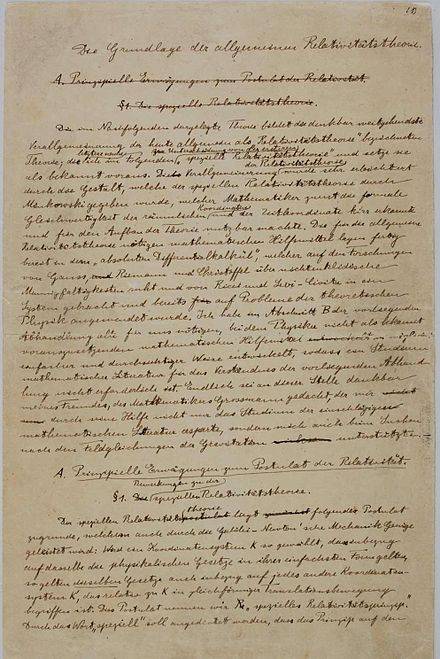 10
Die Grundlage der allgemeinen Relativitätstheorie.
A. Prinzipielle Erwägungen zum Postulat der Relativität.
§1. Die spezielle Relativitätstheorie.
Die im Nachfolgenden dargelegte Theorie bildet die denkbar weitgehendste
Verallgemeinerung der heute allgemein als „Relativitätstheorie" bezeichneten
letztere nenne ich zur Unterscheidung von der ersteren
Theorie; die im folgenden „spezielle Relativitätstheorie" und setze sie
der Relativitätstheorie
als bekannt voraus. Die Verallgemeinerung wurde sehr erleichtert
durch die Gestalt, welche der speziellen Relativitätstheorie durch
Minkowski gegeben wurde, welcher Mathematiker zuerst die formale
Koordinaten
Gleichwertigkeit der räumlichen und der Zeitkoordinate klar erkannte
und für den Aufbau der Theorie nutzbar machte. Die für die allgemeine
Relativitätstheorie nötigen mathematischen Hilfsmittel lagen fertig
bereit in dem „absoluten Differentialkalkül", welcher auf den Forschungen
von Gauss, und Riemann und Christoffel über nichteuklidische
Mannigfaltigkeiten ruht und von Ricci und Levi-Civita in ein
System gebracht und bereits auf Probleme der theoretischen
Physik angewendet wurde. Ich habe im Abschnitt B der vorliegenden
Abhandlung alle für uns nötigen, bei dem Physiker nicht als bekannt
vorauszusetzenden mathematischen Hilfsmittel in möglichst
einfacher und durchsichtiger Weise entwickelt, sodass ein Studium
mathematischer Literatur für das Verständnis der vorliegenden Abhand
lung nicht erforderlich ist. Endlich sei an dieser Stelle dankbar
meines Freundes, des Mathematikers Grossmann gedacht, der mir
durch seine Hilfe nicht nur das Studium der einschlägigen
mathematischen Literatur ersparte, sondern mich auch beim Suchen
nach den Feldgleichungen der Gravitation unterstützte.
A. Prinzipielle Erwägungen zum Postulat der Relativität.
Bemerkungen zu der
§1. Die speziellen Relativitätstheorie.
theorie
Der speziellen Relativitätspostulat liegt folgendes Postulat
zugrunde, welchem auch durch die Galilei-Newton'sche Mechanik Genüge
geleistet wird: Wird ein Koordinatensystem K so gewählt, dass inbezug
auf dasselbe die physikalischen Gesetze in ihrer einfachsten Form gelten,
so gelten dieselben Gesetze auch inbezug auf jedes andere Koordinaten-
system K', das relativ zu K in gleichförmiger Translationsbewegung
begriffen ist. Dies Postulat nennen wir „spezielles Relativitätsprinzip".
Durch das Wort „speziell" soll angedeutet werden, dass das Prinzip auf den